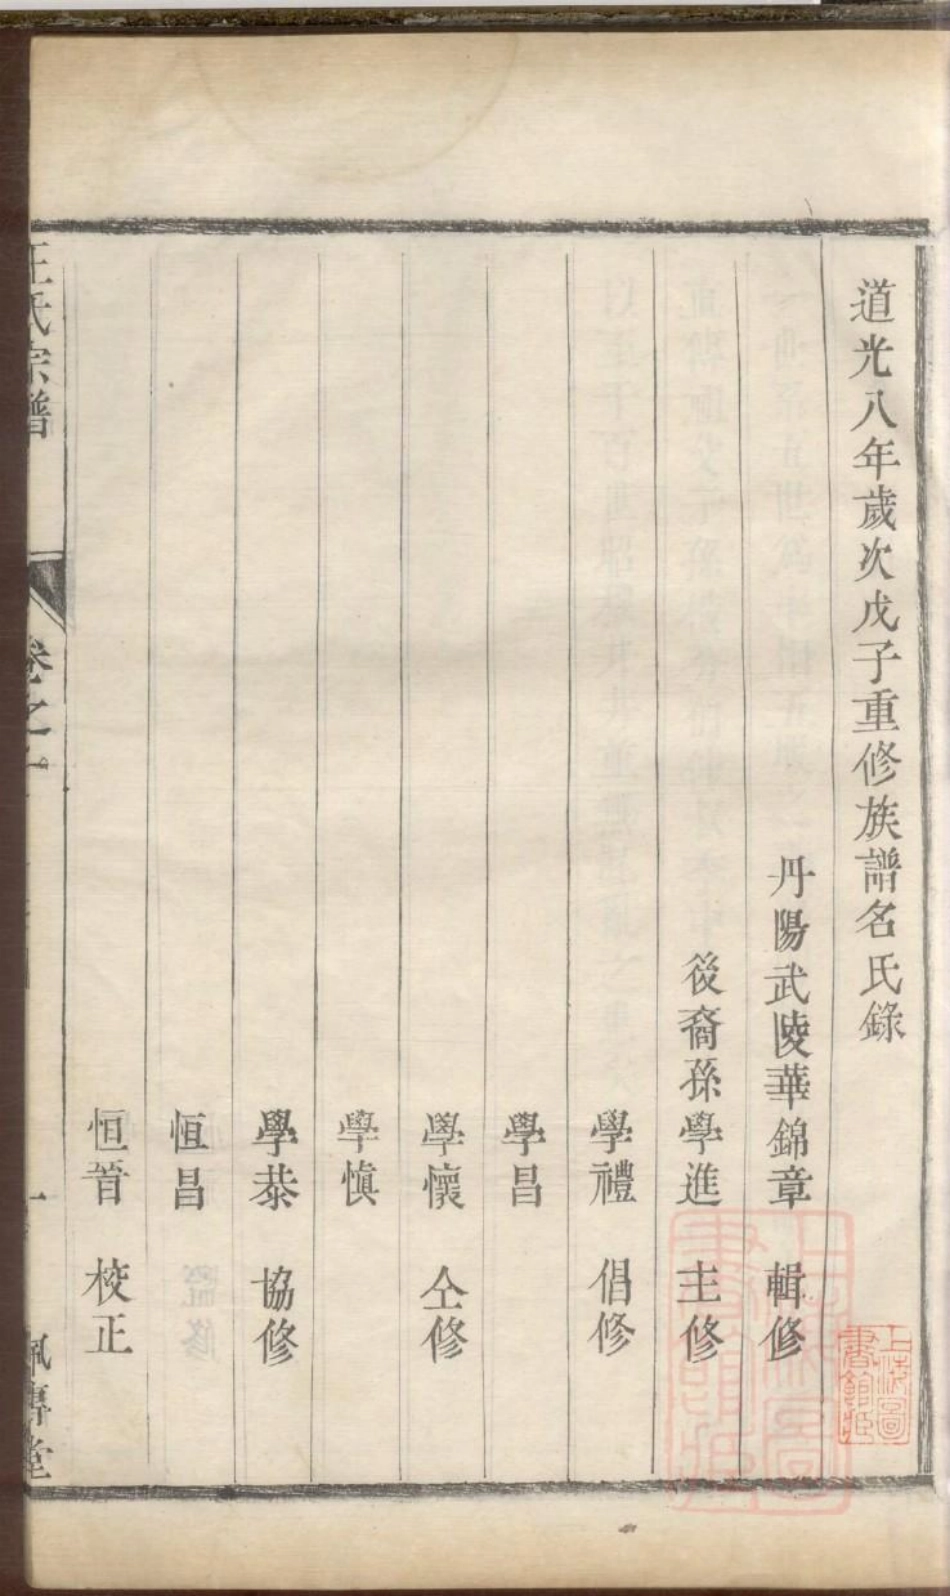 道光八年歲次戊子重修族譜名氏錄
丹陽武陵華錦章 輯修
後裔孫學進 主修
學禮 倡修
學昌
學懷 仝修
學慎
學恭 協修
恒昌
恒晉 校正
王氏宗譜 卷之一 一 堂
上海圖書館藏